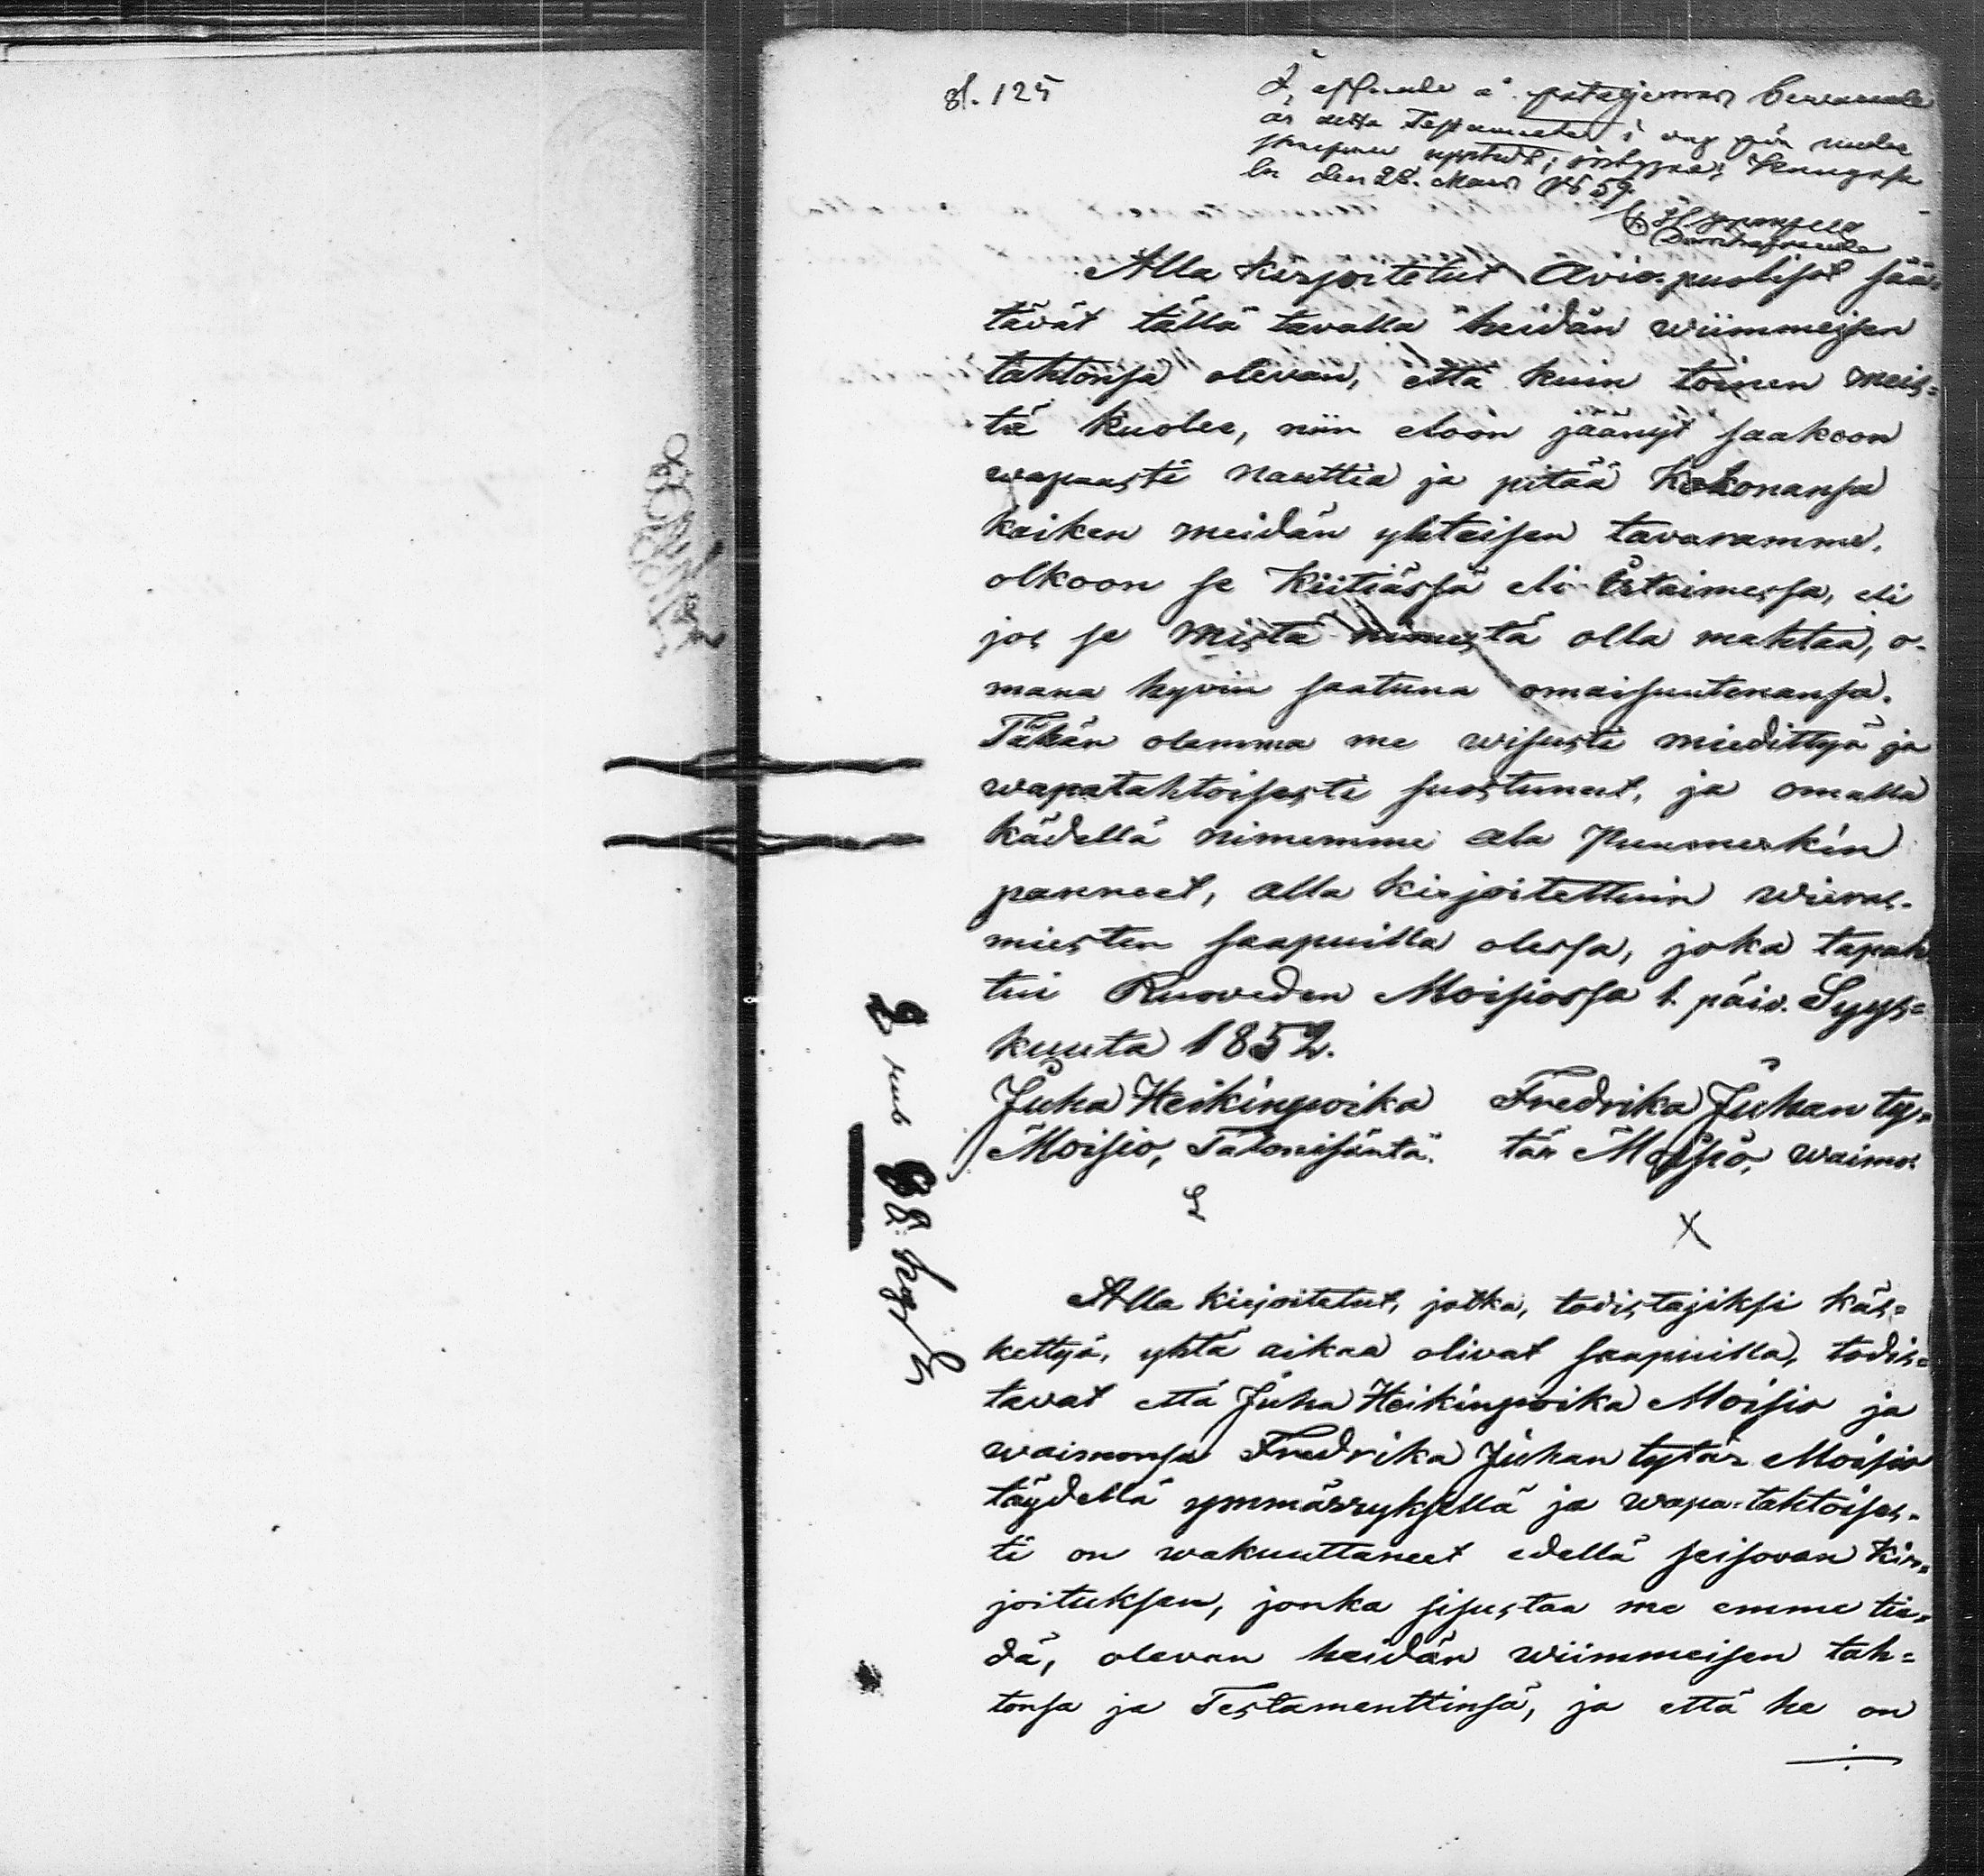 §. 125
är detta Testamente i dag för under
den 28. Mars 1859.
Alla kirjoitetut Avio-puolisot sää-
tävät tällä tavalla heidän wiimmeisen
tahtonsa olevan, että kuin toinen meis=
tä kuolee, niin eloon jäänyt saakoon
wapaasti nauttia ja pitää kokonansa
kaiken meidän yhteisen tavaramme,
olkoon se kiitiässä eli irtaimessa, eli
jos se mistä nimestä olla mahtaa, o-
mana hyvin saatuna omaisuutenansa.
Tähän olemma me wisusti miedittyä ja
wapatahtoisesti suostuneet, ja omalla
kädellä nimemme ala Puumerkin
panneet, alla kirjoitettuin wieras-
miesten saapuilla olessa, joka tapah
tui Ruoveden Moisiossa 1. päiv. Syys=
kuuta 1852.
Juha Heikinpoika Fredrika Juhan ty=
Moisio, Talonisäntä. tär Moisio, waimo.
X
Alla kirjoitetut, jotka, todistajiksi käs=
kettyä, yhtä aikaa olivat saapuilla, todis=
tavat että Juha Heikinpoika Moisio ja
waimonsa Fredrika Juhan tytär Moisio
täydellä ymmärryksellä ja wapa=tahtoises-
ti on wakuuttaneet edellä seisovan kir=
joituksen, jonka sisustaa me emme tie=
dä, olevan heidän wiimmeisen tah=
tonsa ja Testamenttinsä, ja että he on